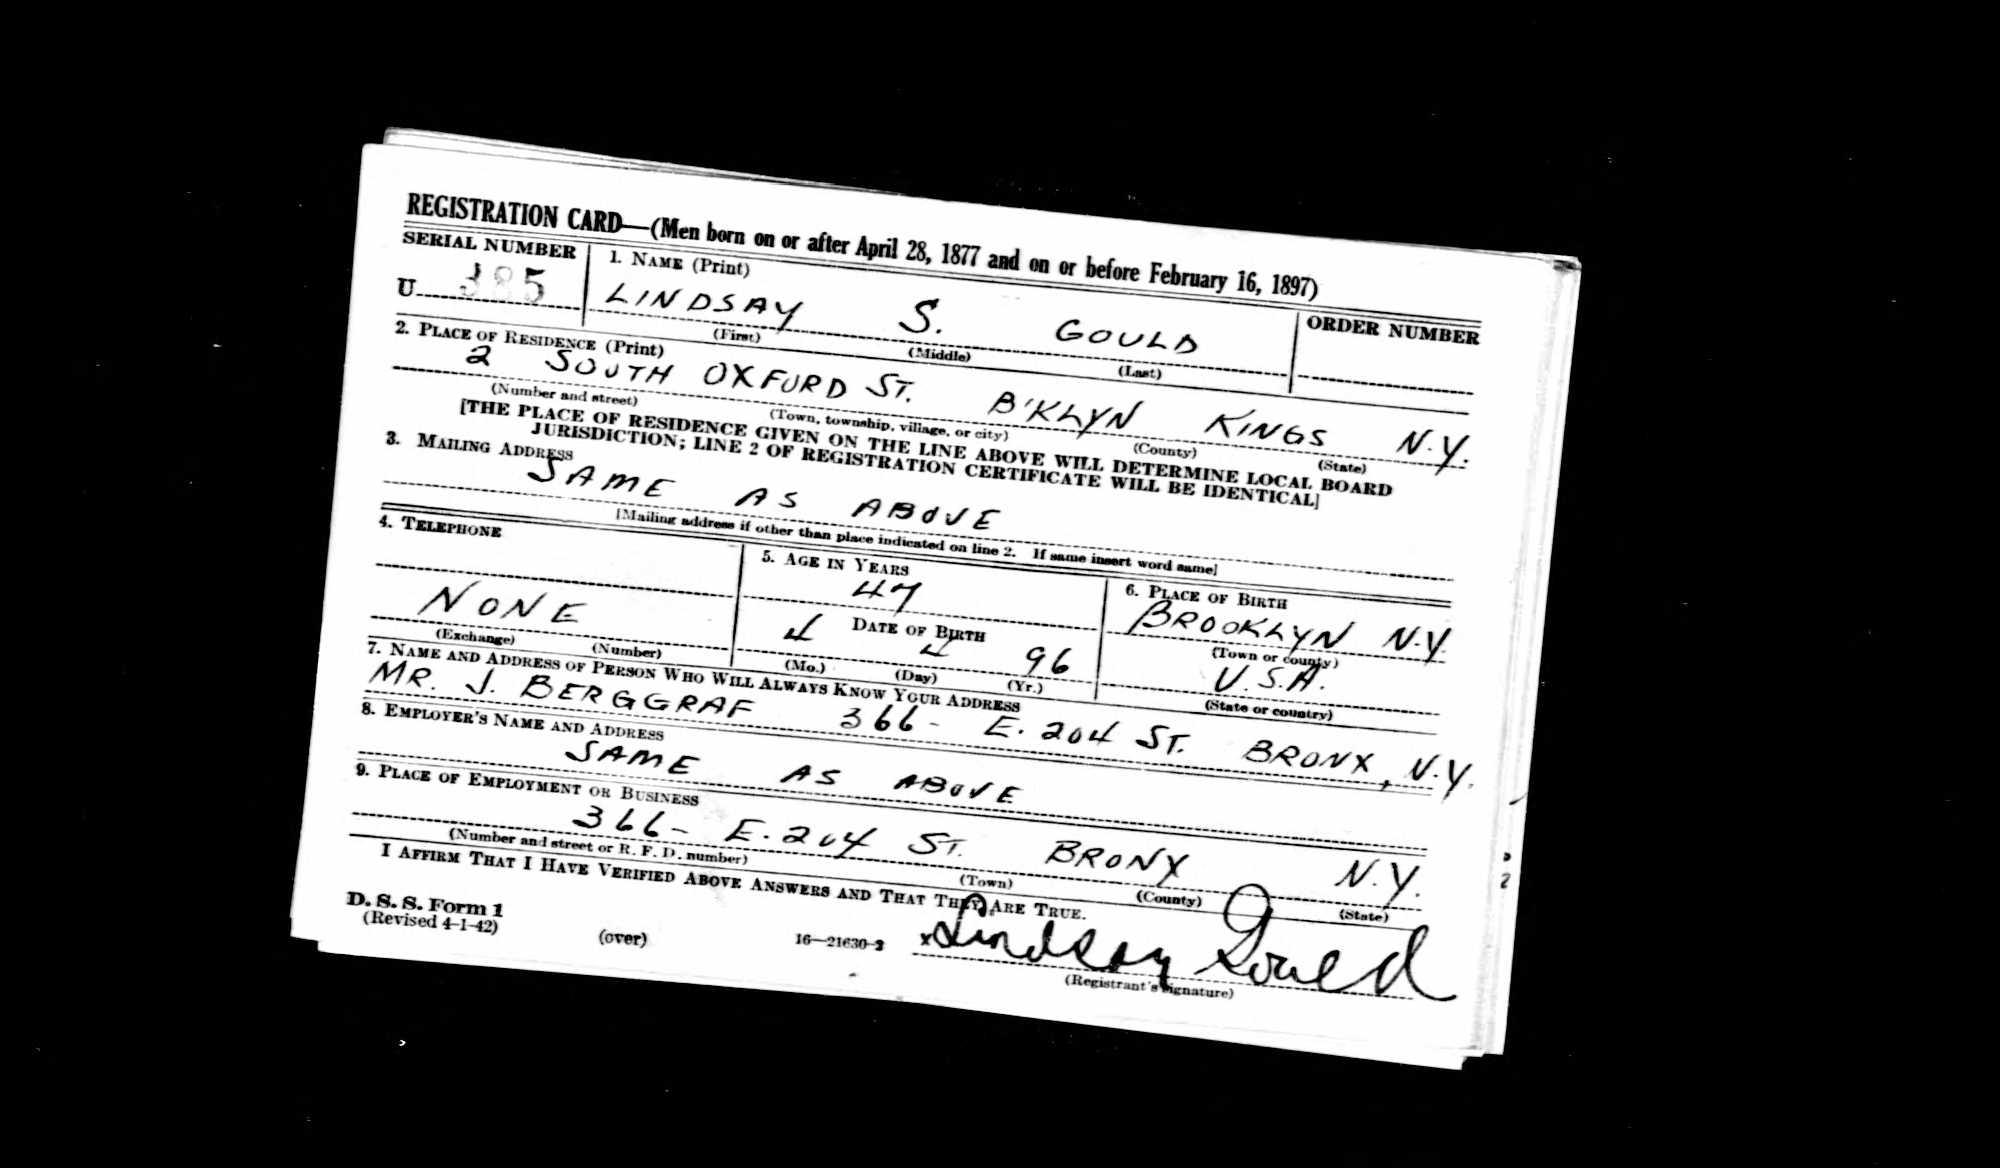 REGISTRATION CARD—(Men born on or after April 28, 1877 and on or before February 16, 1897)
SERIAL NUMBER
U 385
1. NAME (Print)
LINDSAY S. GOULD
(First) (Middle) (Last)
ORDER NUMBER
2. PLACE OF RESIDENCE (Print)
2 SOUTH OXFURD ST. B'KLYN KINGS N.Y.
(Number and street) (Town, township, village, or city) (County) (State)
[THE PLACE OF RESIDENCE GIVEN ON THE LINE ABOVE WILL DETERMINE LOCAL BOARD
JURISDICTION; LINE 2 OF REGISTRATION CERTIFICATE WILL BE IDENTICAL]
3. MAILING ADDRESS
SAME AS ABOVE
[Mailing address if other than place indicated on line 2. If same insert word same]
4. TELEPHONE
NONE
(Exchange) (Number)
5. AGE IN YEARS
47
DATE OF BIRTH
4 4 96
(Mo.) (Day) (Yr.)
6. PLACE OF BIRTH
BROOKLYN N.Y.
(Town or county)
U.S.A.
(State or country)
7. NAME AND ADDRESS OF PERSON WHO WILL ALWAYS KNOW YOUR ADDRESS
MR. J. BERGGRAF 366- E. 204 ST. BRONX, N.Y.
8. EMPLOYER'S NAME AND ADDRESS
SAME AS ABOVE
9. PLACE OF EMPLOYMENT OR BUSINESS
366- E. 204 ST. BRONX N.Y.
(Number and street or R. F. D. number) (Town) (County) (State)
I AFFIRM THAT I HAVE VERIFIED ABOVE ANSWERS AND THAT THEY ARE TRUE.
D. S. S. Form 1
(Revised 4-1-42)
(over)
16—21630-2
x Lindsay Gould
(Registrant's signature)